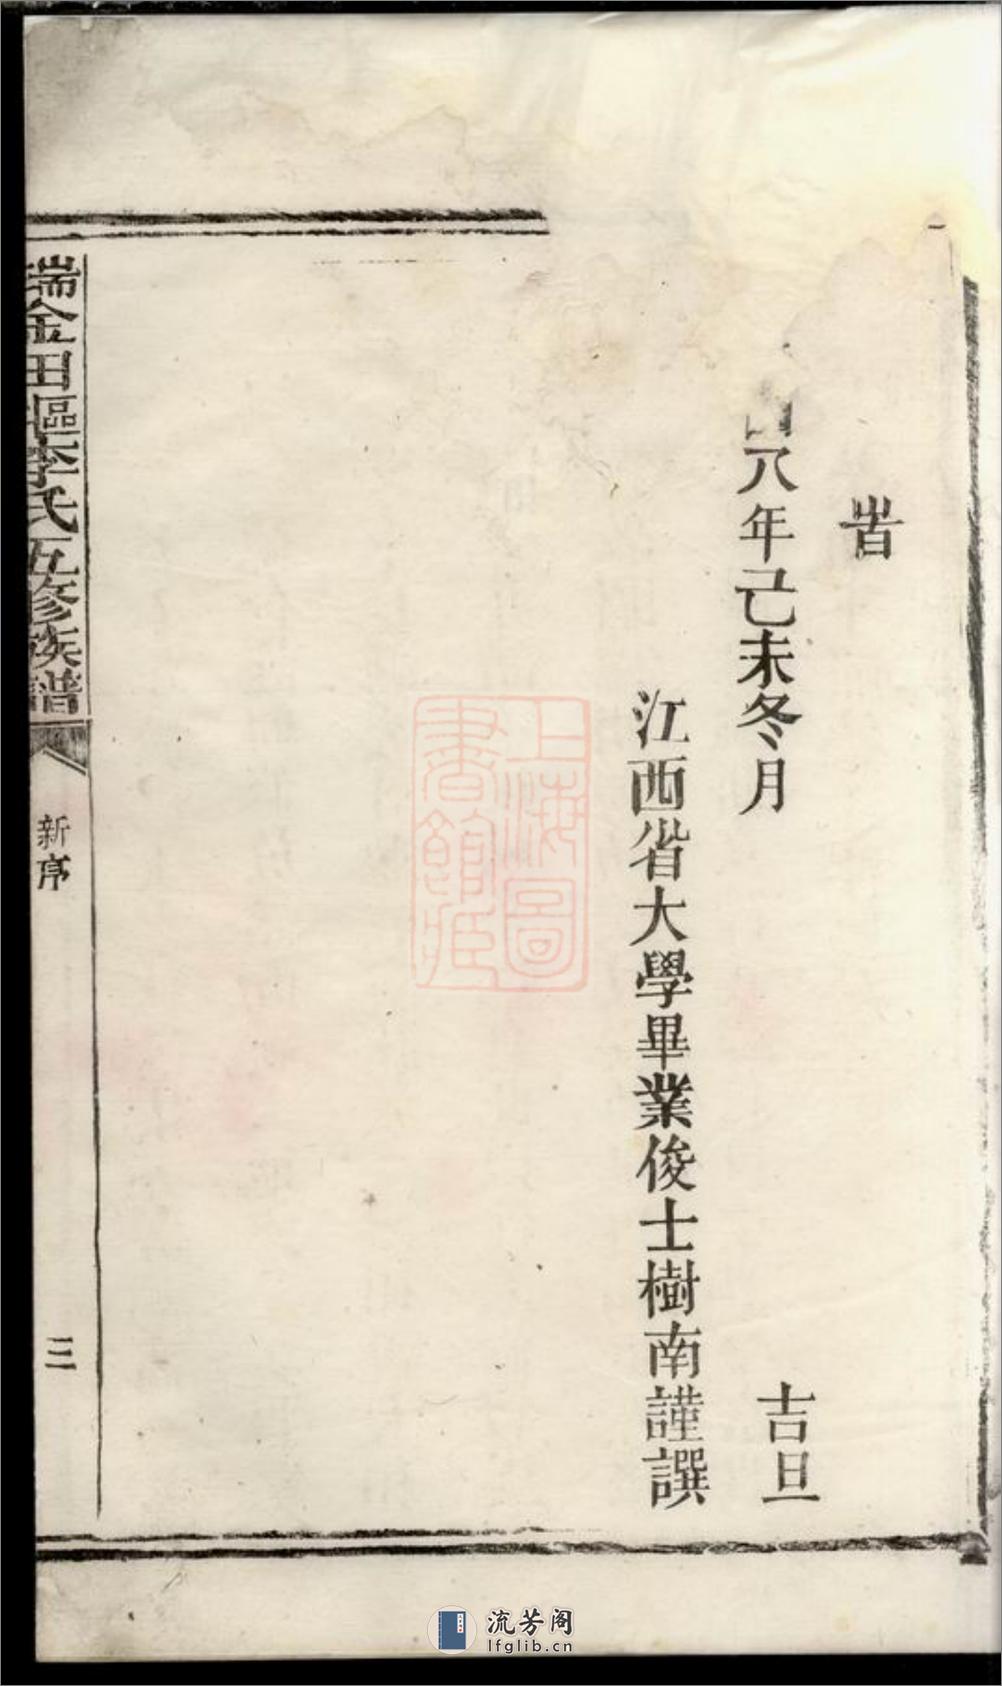 旹
八年己未冬月 吉旦
江西省大學畢業俊士樹南謹譔
上海圖
書館藏
瑞金田李氏五修族譜
新序
三
流芳阁
lfglib.cn